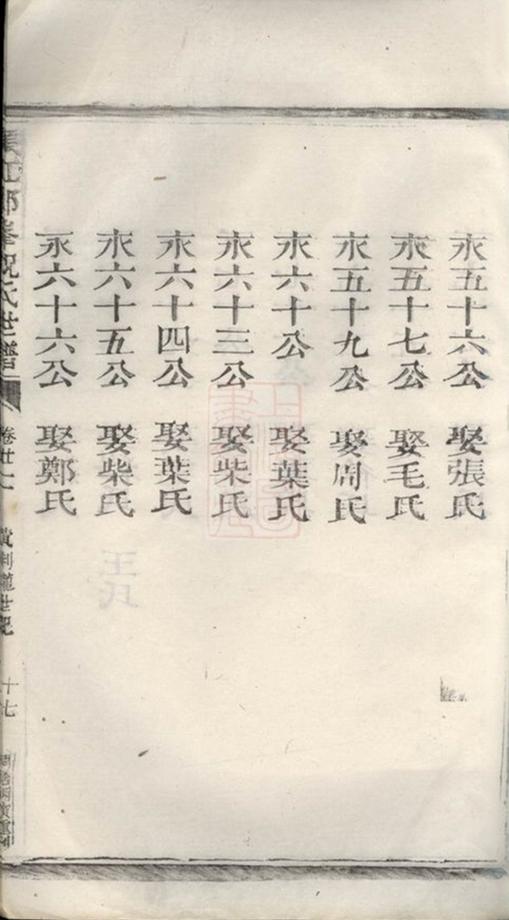 永五十六公 娶張氏
永五十七公 娶毛氏
永五十九公 娶周氏
永六十公 娶葉氏
永六十三公 娶柴氏
永六十四公 娶葉氏
永六十五公 娶柴氏
永六十六公 娶鄭氏
郎峯祝氏世譜
十七